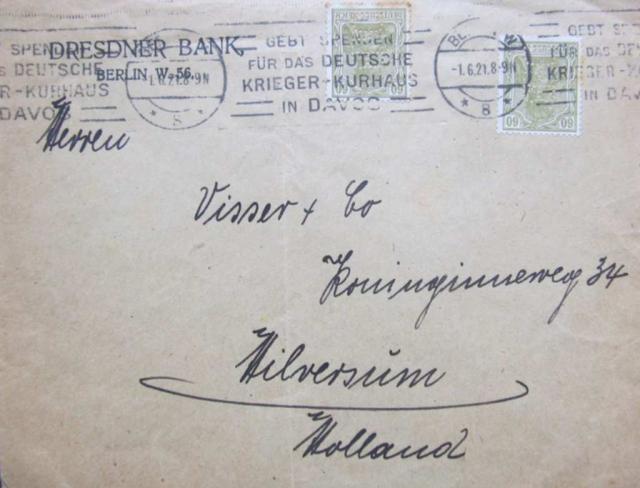 DRESDNER BANK,
BERLIN, W-56.
SPENDEN
DEUTSCHE
KRIEGER-KURHAUS
DAVOS
1.6.21.8-9N
* 8 *
GEBT SPENDEN
FÜR DAS DEUTSCHE
KRIEGER-KURHAUS
IN DAVOS
-1.6.21.8-9N
* 8 *
GEBT
FÜR DAS
IN DA
60 60
60 60
Herren
Visser + Co
Koninginneweg 34
Hilversum
Holland